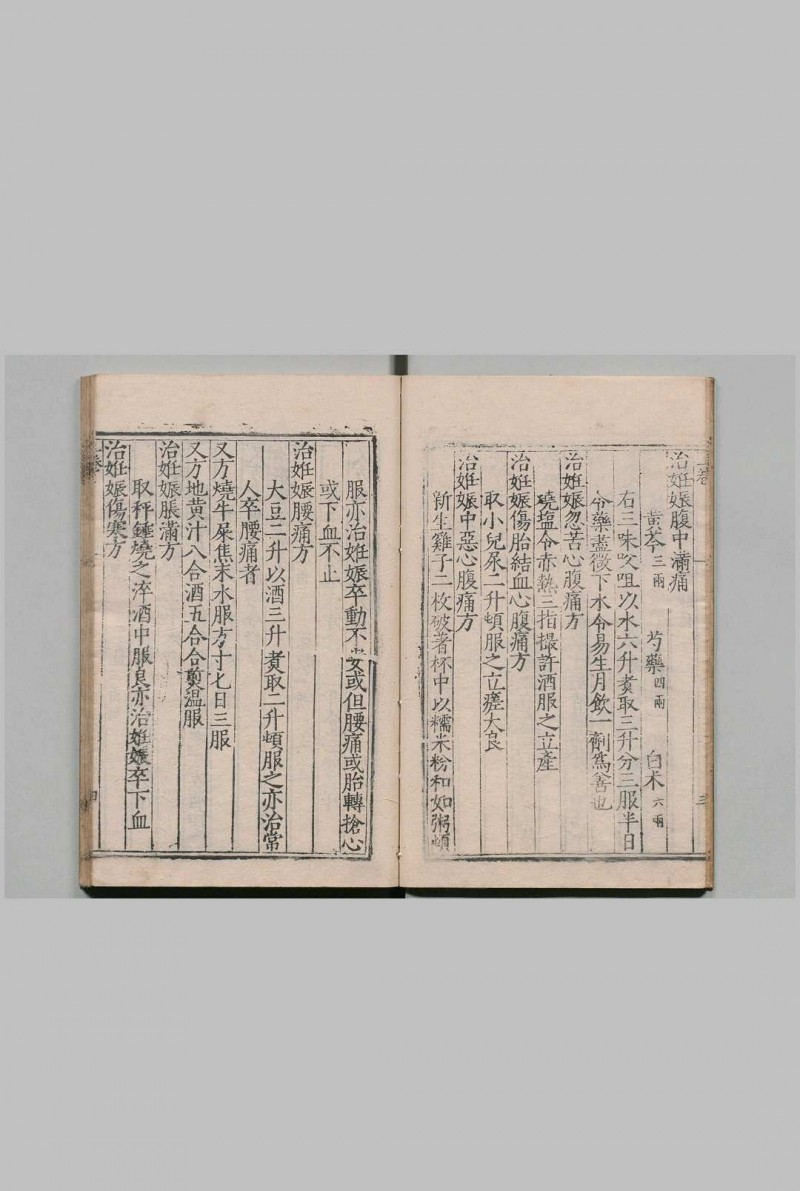 治妊娠腹中滿痛
黄芩三兩 芍藥四兩 白术六兩
右三味㕮咀以水六升煮取三升分三服半日
令藥盡微下水令易生月飲一劑爲善也
治妊娠忽苦心腹痛方
燒塩令赤熱三指撮許酒服之立產
治妊娠傷胎結血心腹痛方
取小兒尿二升頓服之立瘥大良
治妊娠中惡心腹痛方
新生雞子二枚破著杯中以糯米粉和如粥頓
三
服亦治妊娠卒動不安或但腰痛或胎轉搶心
或下血不止
治妊娠腰痛方
大豆二升以酒三升煮取二升頓服之亦治常
人卒腰痛者
又方燒牛屎焦末水服方寸匕日三服
又方地黄汁八合酒五合合煎温服
治妊娠脹滿方
取秤錘燒之淬酒中服良亦治妊娠卒下血
治妊娠傷寒方
四